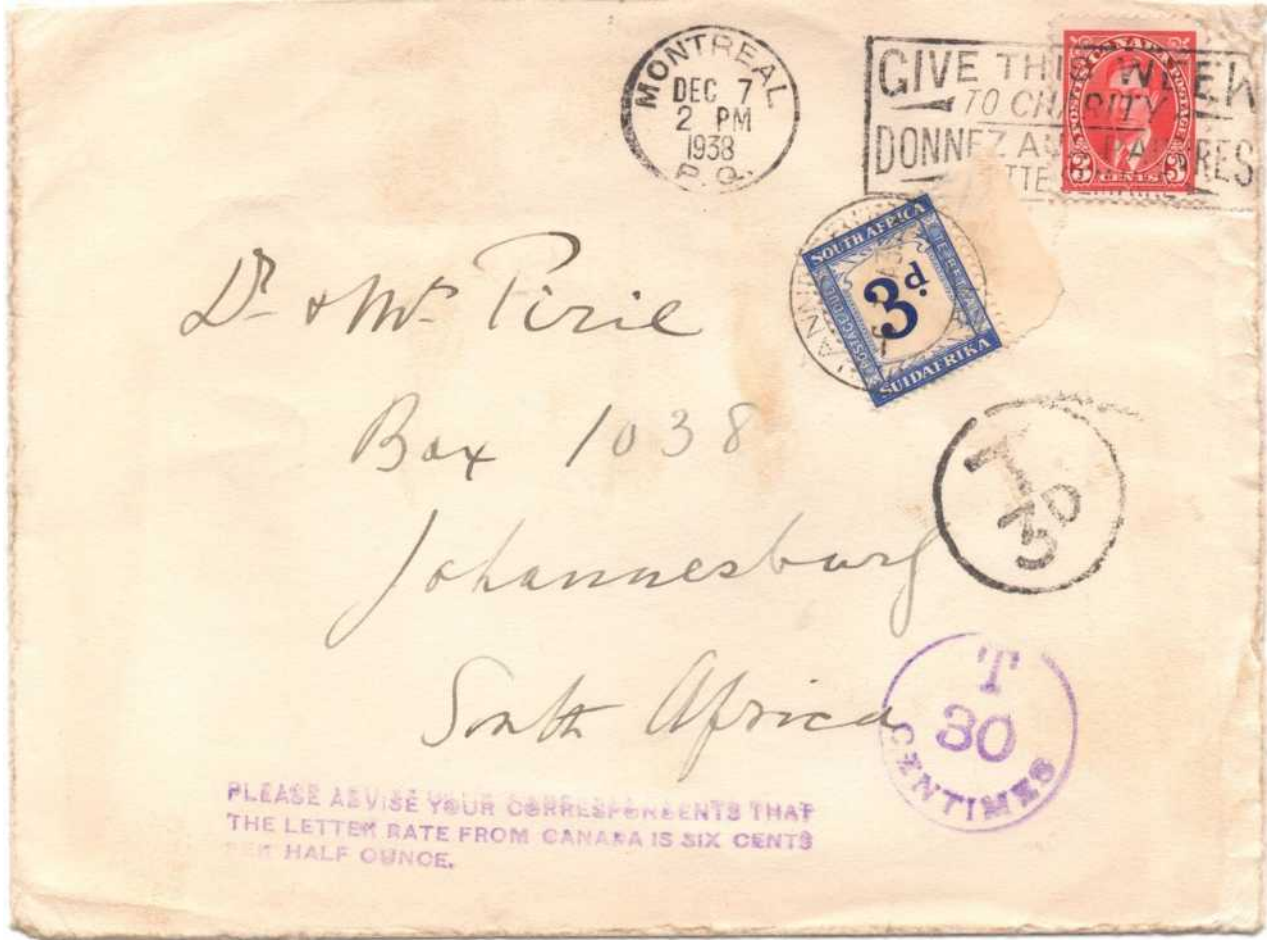 MONTREAL
DEC 7
2 PM
1938
P.Q.
GIVE THIS WEEK
TO CHARITY
DONNEZ AUX PAUVRES
CANADA POSTAGE
POSTES
3 CENTS 3
SOUTH AFRICA
POSTAGE DUE
TE BETAAL
3d.
SUIDAFRIKA
Dr & Mrs Pirie
Box 1038
Johannesburg
South Africa
T
3D
T
30
CENTIMES
PLEASE ADVISE YOUR CORRESPONDENTS THAT
THE LETTER RATE FROM CANADA IS SIX CENTS
PER HALF OUNCE.